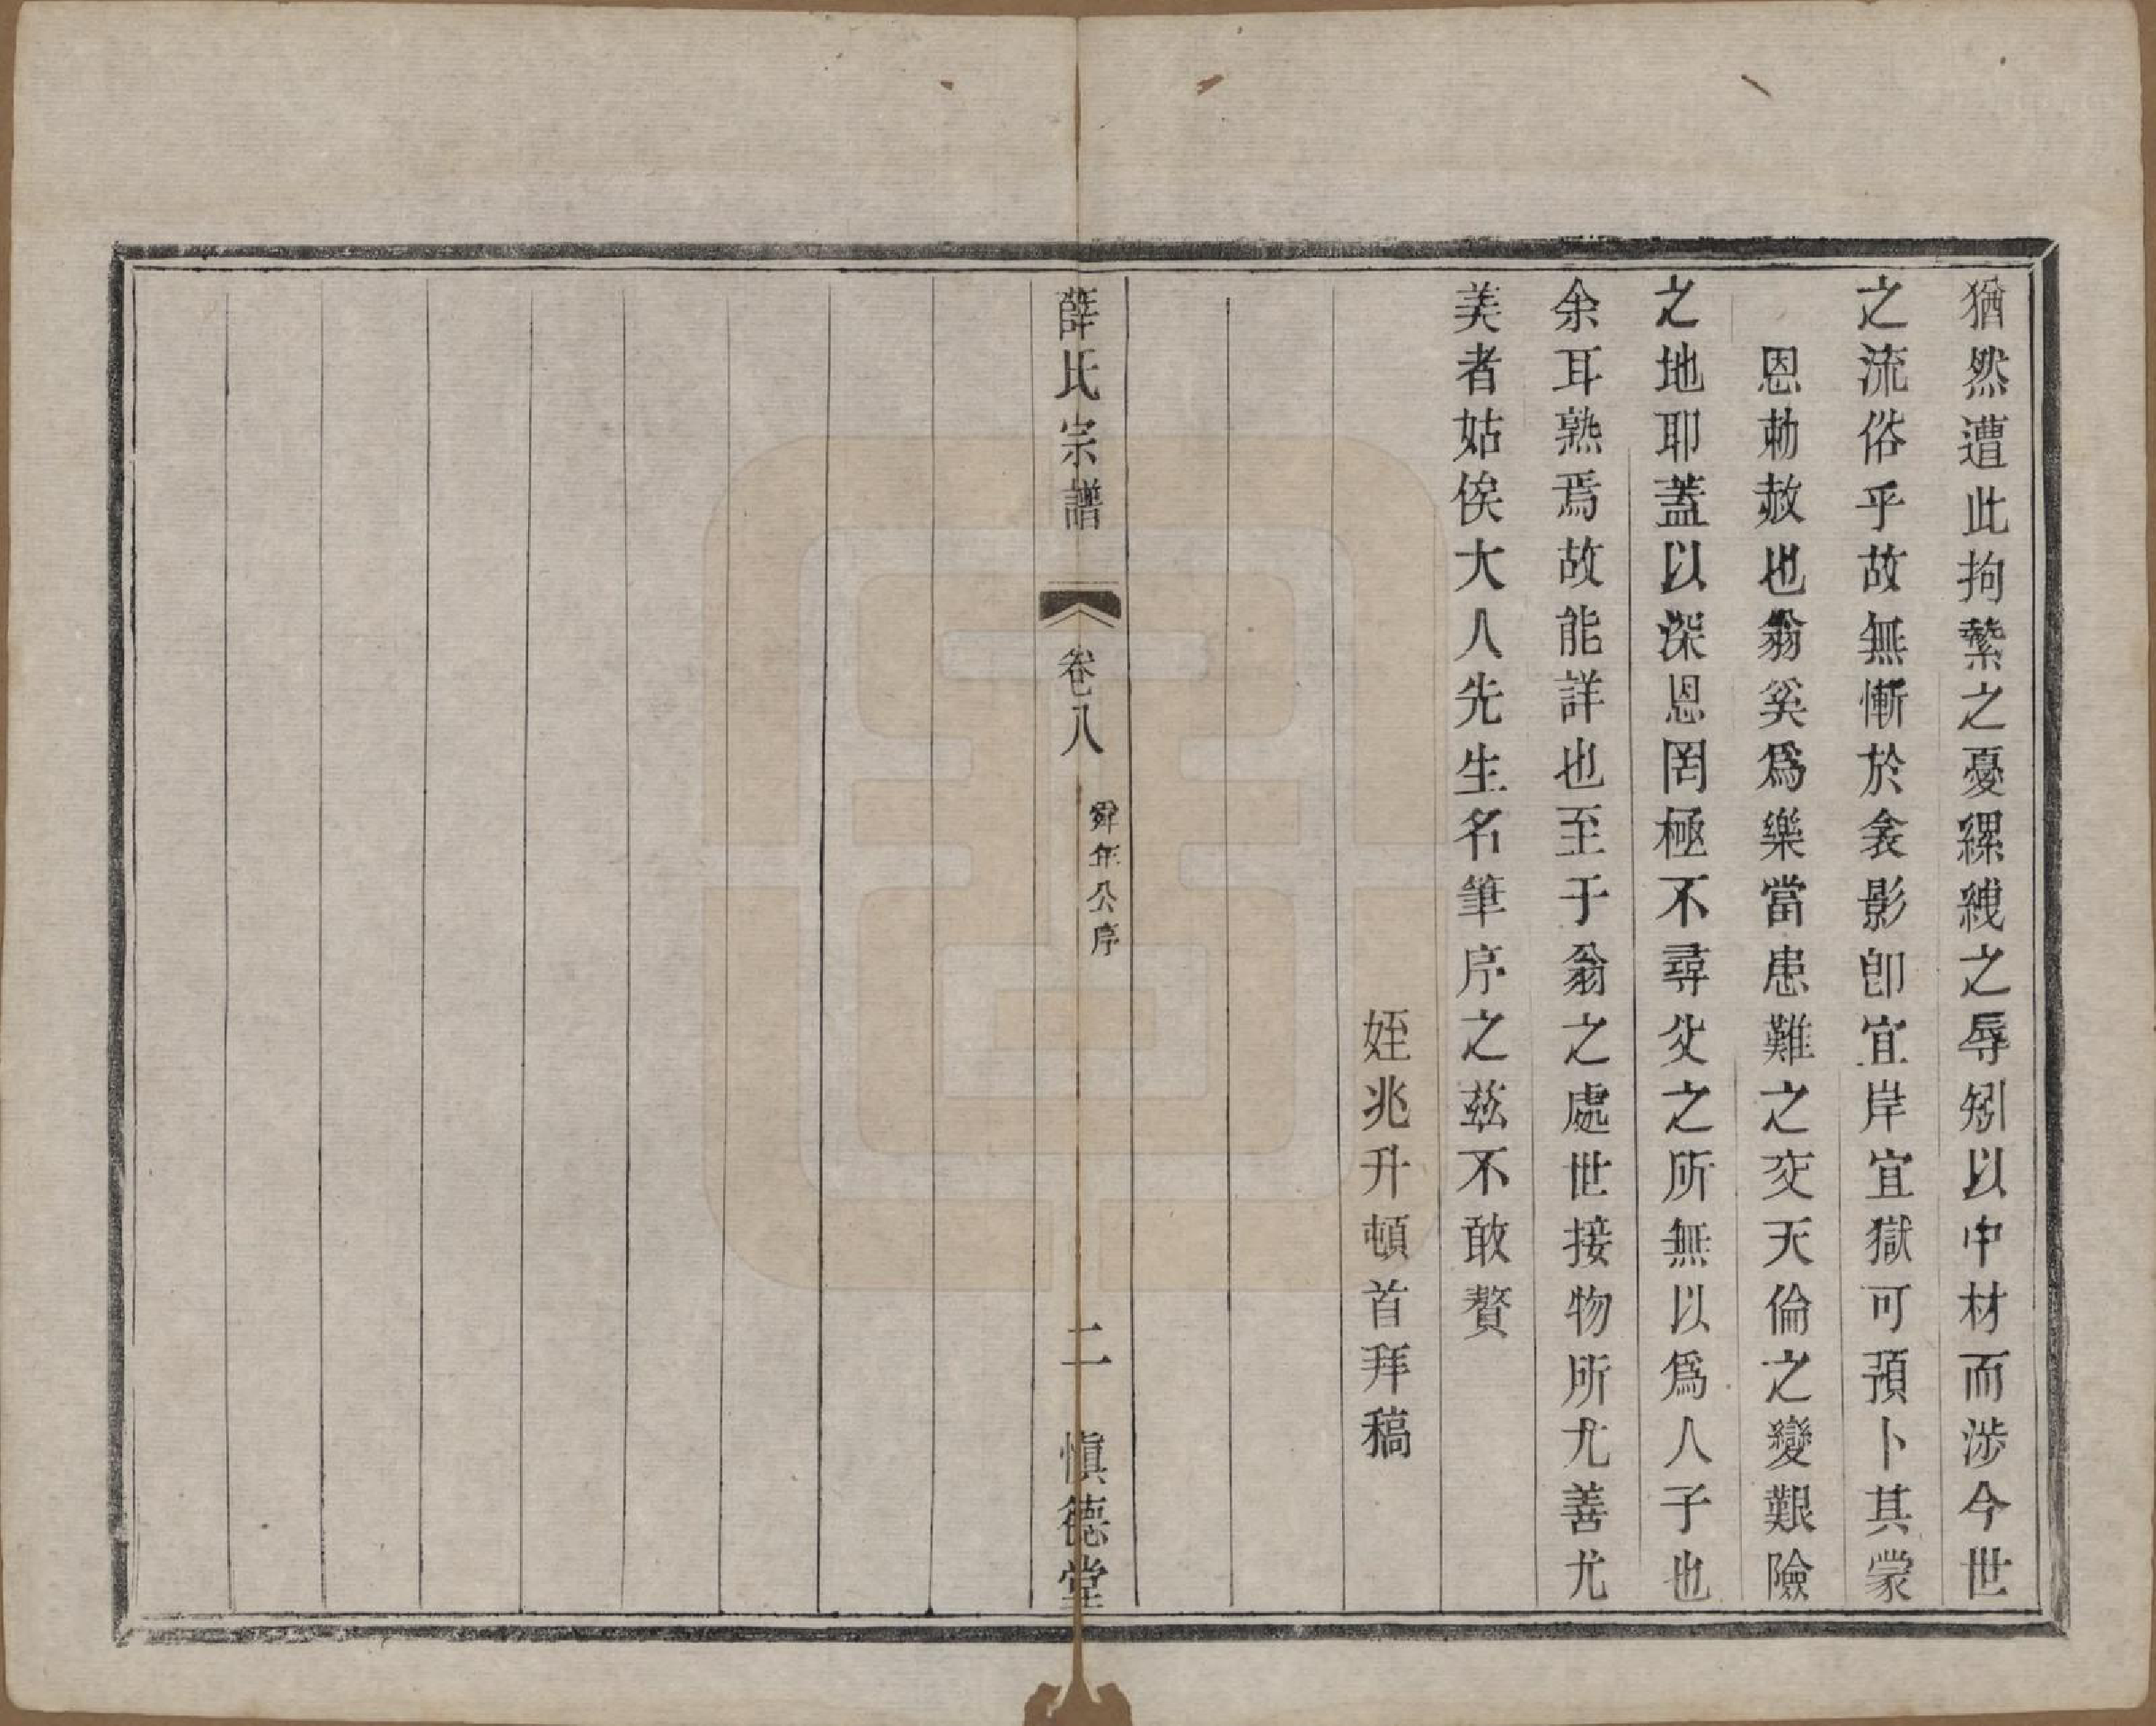 猶然遭此拘縶之憂縲絏之辱矧以中材而涉今世
之流俗乎故無慚於衾影卽宜岸宜獄可預卜其蒙
恩勅赦也翁奚爲樂當患難之交天倫之變艱險
之地耶蓋以深恩罔極不尋父之所無以爲人子也
余耳熟焉故能詳也至于翁之處世接物所尤善尤
美者姑俟大人先生名筆序之兹不敢贅
姪兆升頓首拜稿
薛氏宗譜
卷八
舜年公序
二
愼德堂